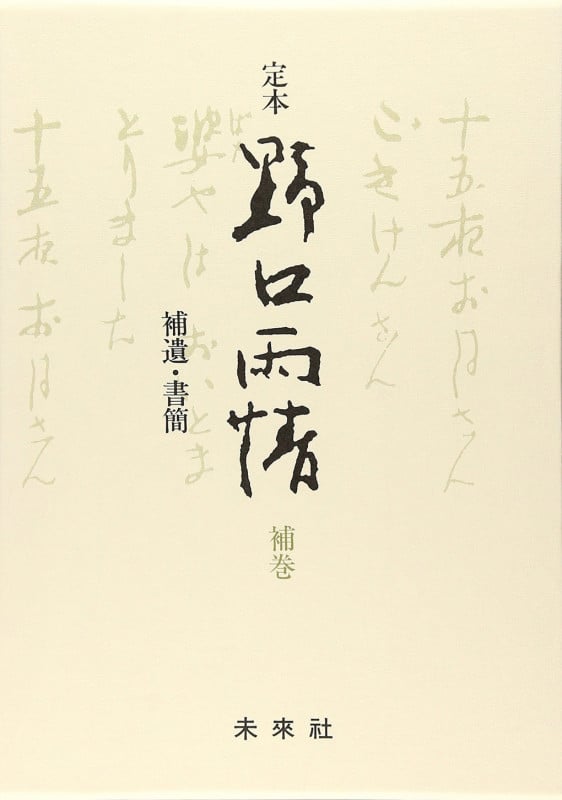 定本
野口雨情
補巻
補遺・書簡
十五夜お月さん
ごきげんさん
婆やは おいとま
ばあ
とりました
十五夜お月さん
未來社